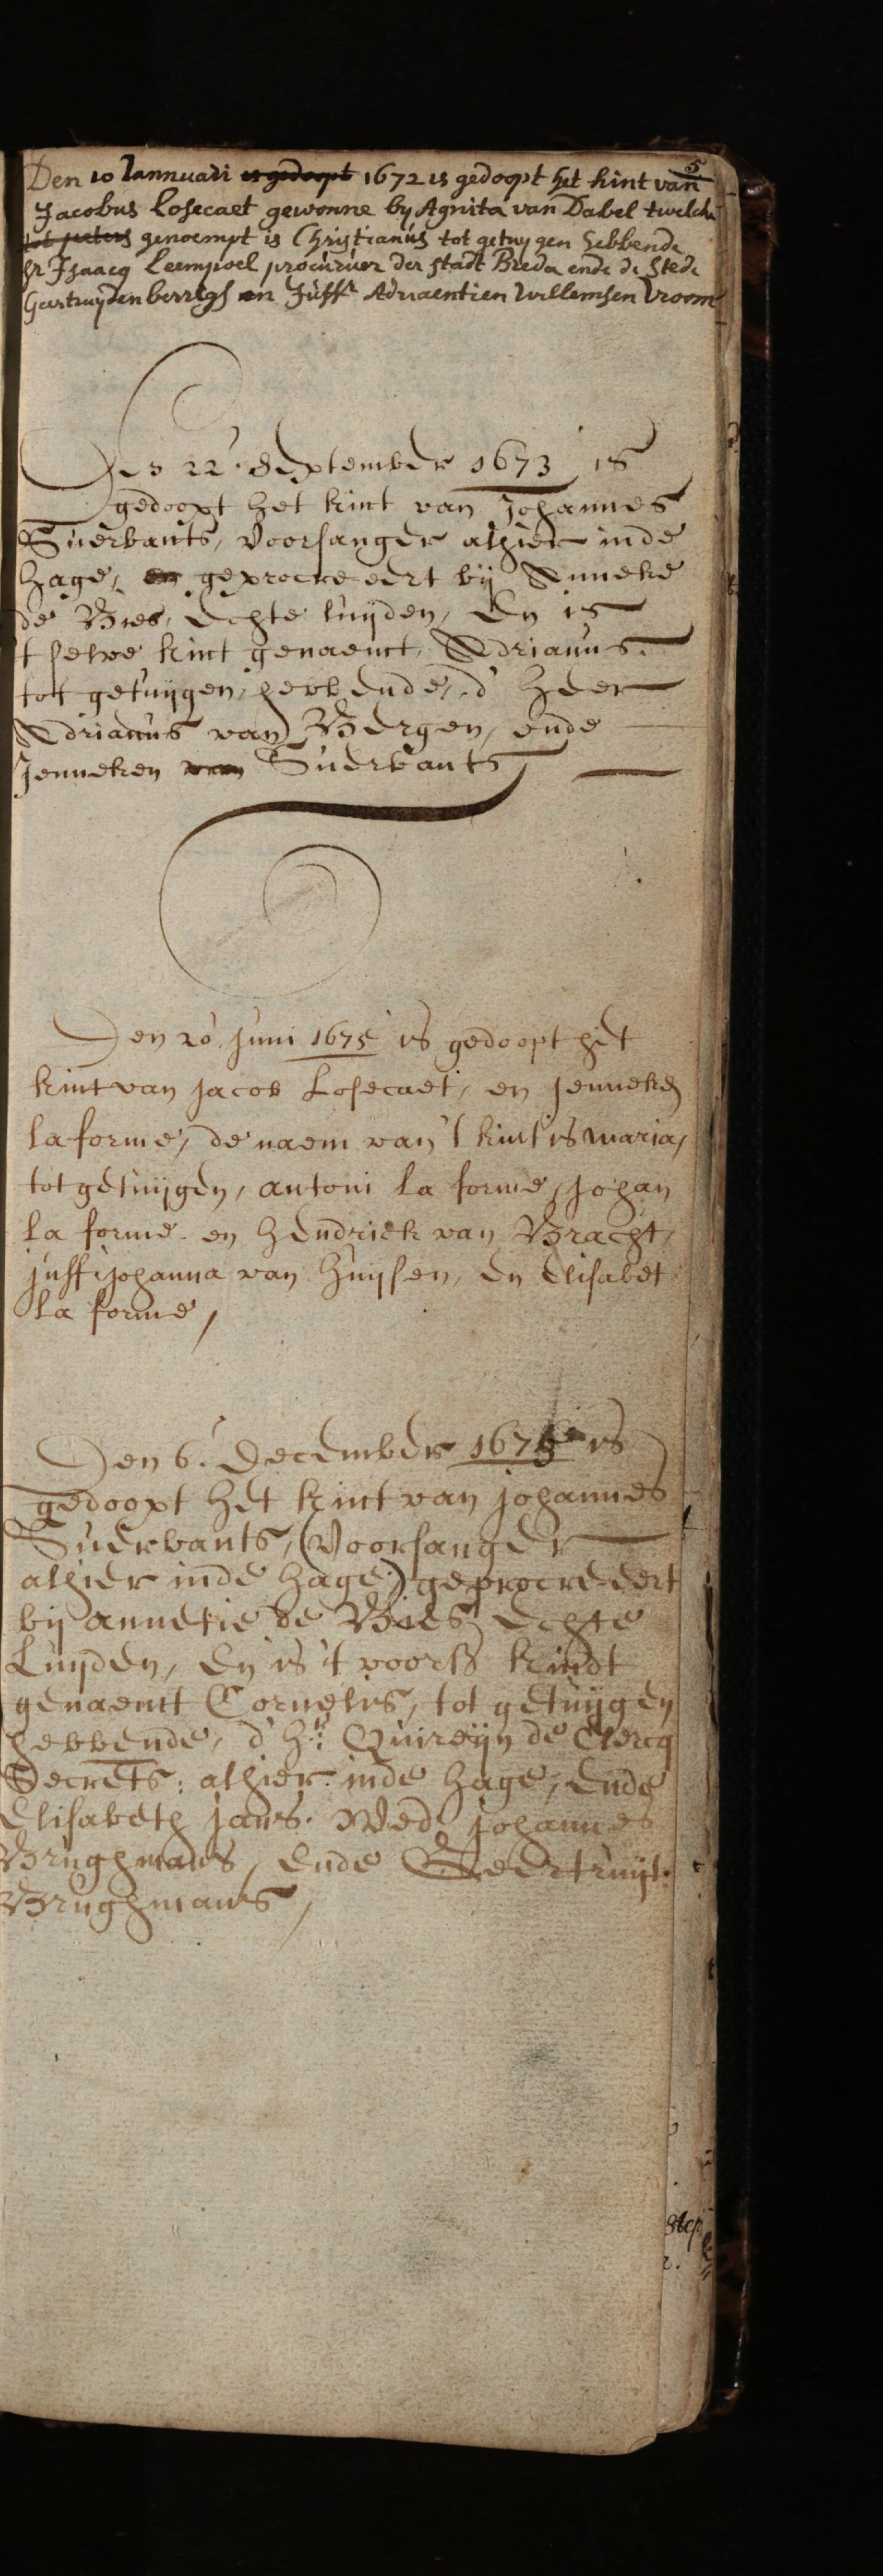 5
Den 10 Jannuari is gedoopt 1672 is gedoopt het kint van
Jacobus Losecaet gewonne by Agnita van Dabel twelck
tot peters genoempt is Christianus tot getuygen hebbende
Sr Isaacq Leempoel procuruer der stadt Breda ende de stede
Geertruydenberrigh en Juffr Adriaentien Willemsen Vroom
Den 22. September 1673 is
gedoopt het kint van Johannes
Suerbants, Voorsanger alhier inde
Hage, en geprocreeert bij Anneke
de Bies, Echte luijden, En is
t selve kint genaemt, Adrianus.
tot getuijgen, hebbende, d' Heer
Adrianus van Bergen, ende
Jenneken van Suerbants
Den 20 Juni 1675 is gedoopt het
kint van Jacob Losecaet, en Jenneken
la forme, de naem van 't kint is maria,
tot getuijgen, antoni la forme, Johan
la forme en Hendrick van Bracht,
juff: johanna van Huijsen, En Elisabet
la forme,
Den 6. December 1675 is
gedoopt Het kint van johannes
Suerbants, (Voorsanger
alhier inde Hage) geprocre-eert
bij annetie de Bies, Echte
Luijden, En is 't voorss kindt
genaemt Cornelis, tot getuijgen
hebbende, d' Hr: Quireijn de Clercq
Secrets: alhier inde Hage, Ende
Elisabeth Jans. Wed. johannes
Brughmans, Ende Geertruijt
Brughmans,